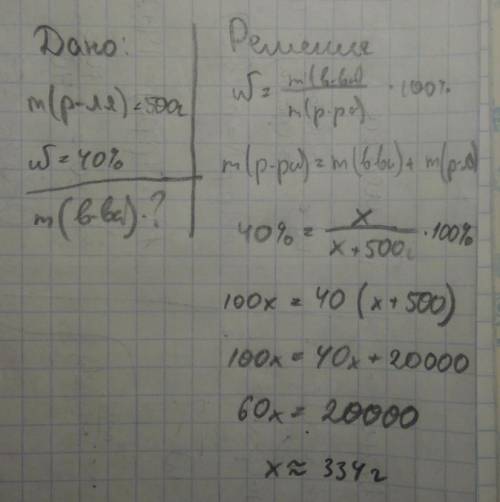 Дано:
m(р-ля) = 500г
W = 40%
m(в-ва) - ?
Решения
W = m(в-ва) / m(р-ра) · 100%
m(р-ра) = m(в-ва) + m(р-ля)
40% = x / x + 500г · 100%
100x = 40 (x + 500)
100x = 40x + 20000
60x = 20000
x ≈ 334г